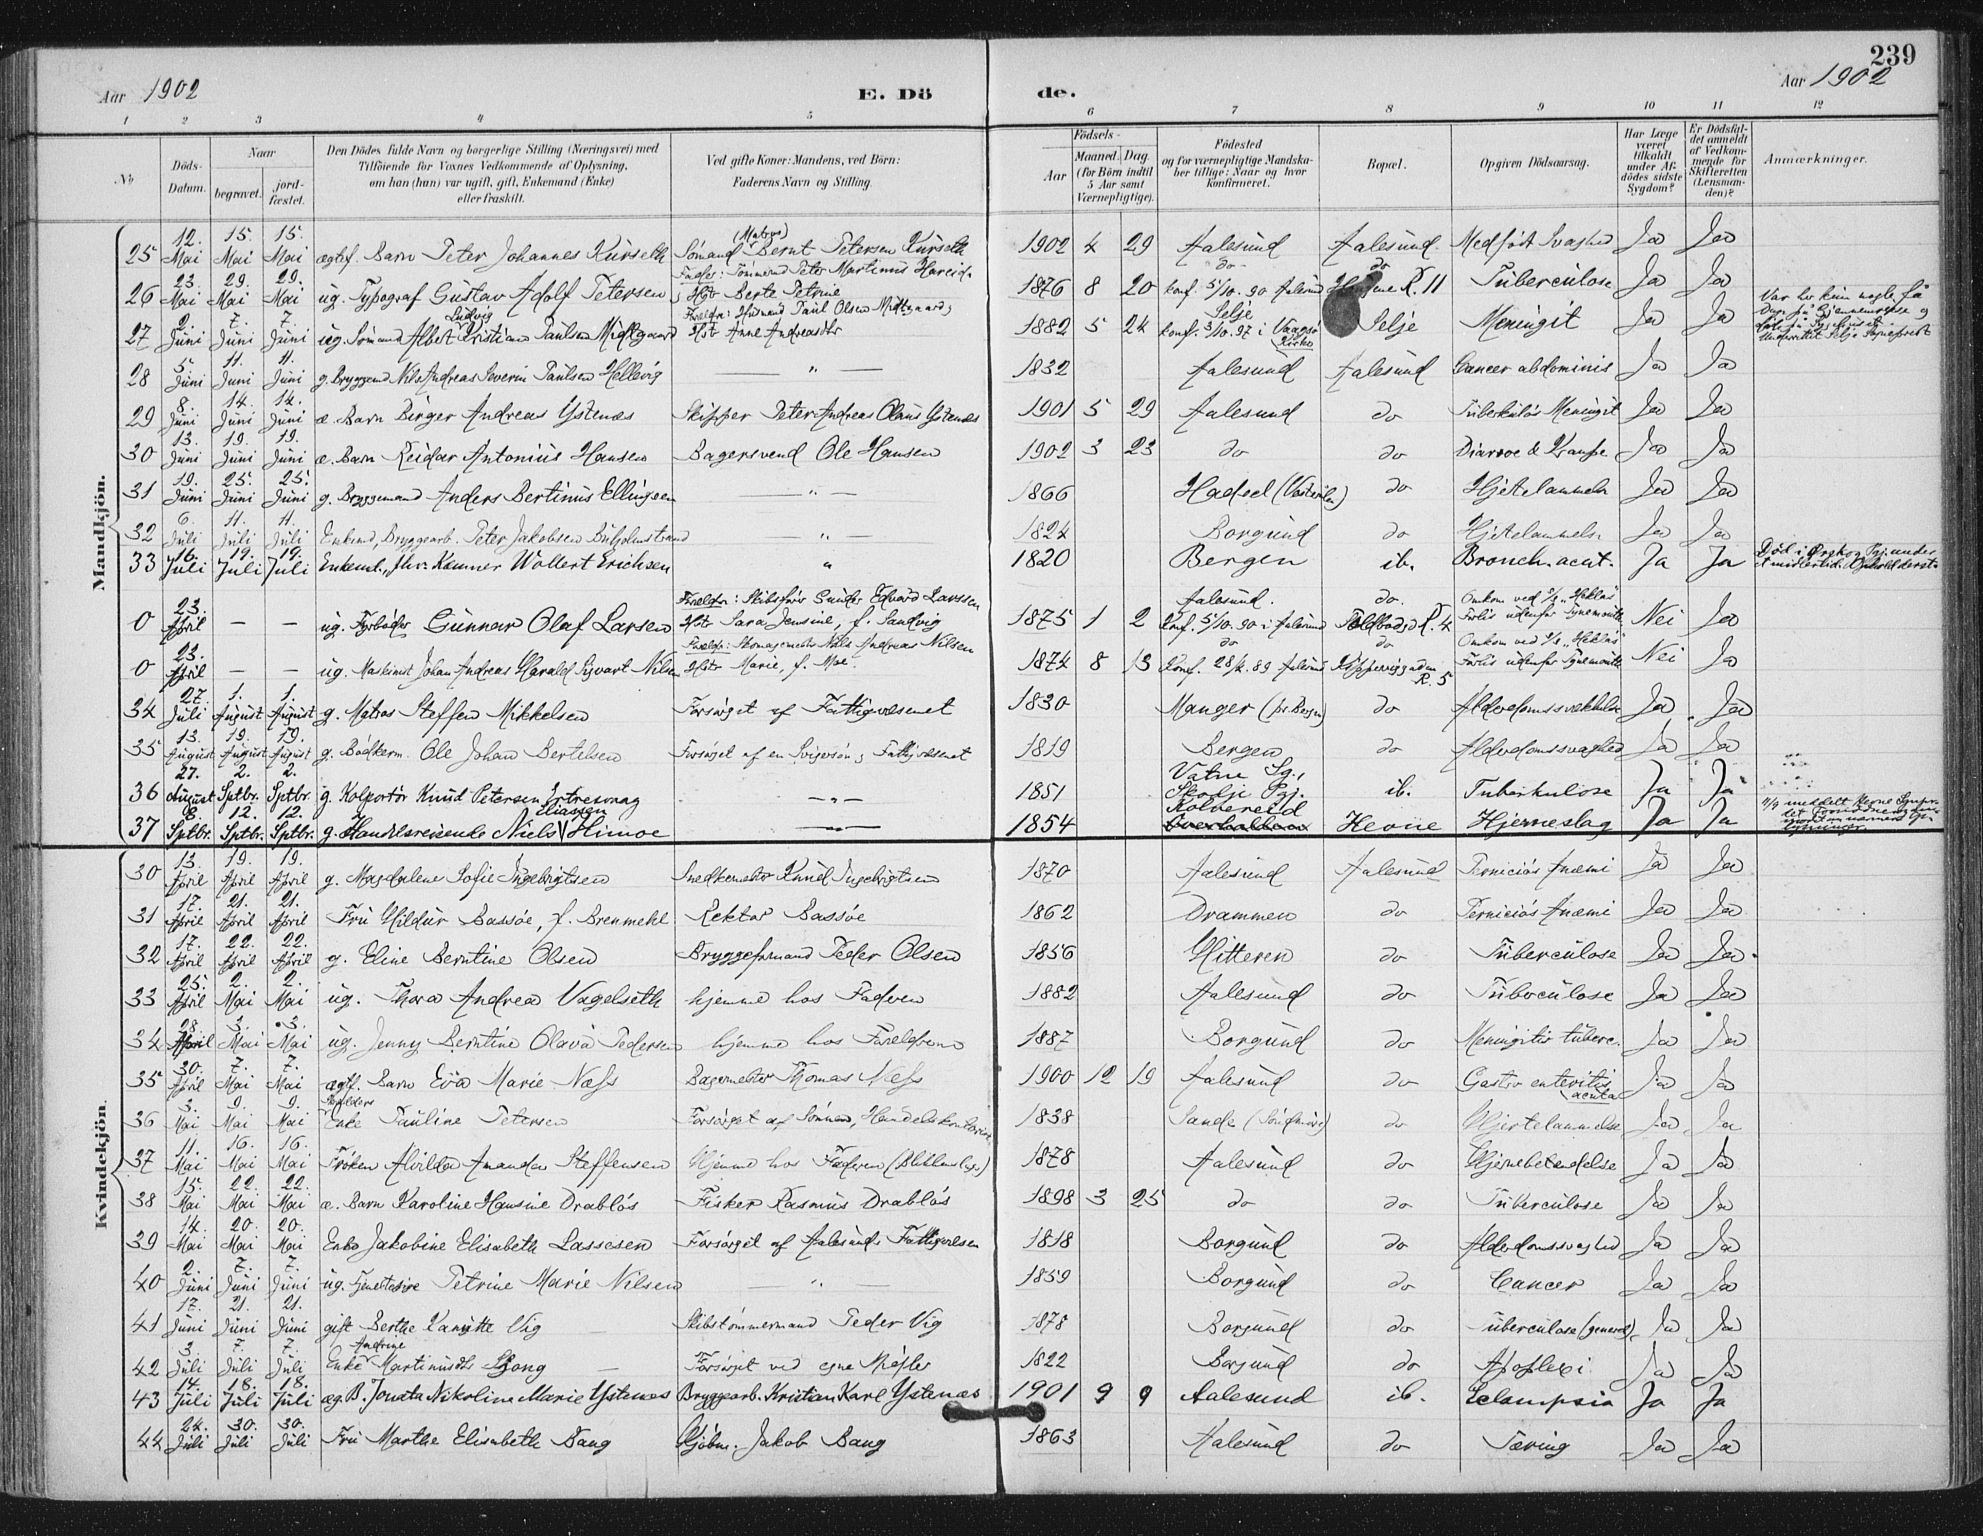 239
Aar 1902 E. Dö de. Aar 1902
1 2 3 4 5 6 7 8 9 10 11 12
№ Döds-Datum. Naar begravet. jordfæstet. Den Dödes fulde Navn og borgerlige Stilling (Næringsvei) med Tilföiende for Voxnes Vedkommende af Oplysning, om han (hun) var ugift, gift, Enkemand (Enke) eller fraskilt. Ved gifte Koner: Mandens, ved Börn: Faderens Navn og Stilling. Födsels- Aar Maaned. Dag. (for Börn indtil 5 Aar samt Værnepligtige). Födested og for værnepligtige Mandskaber tillige: Naar og hvor konfirmeret. Bopæl. Opgiven Dödsaarsag. Har Læge været tilkaldt under Afdödes sidste Sygdom? Er Dödsfaldet anmeldt af Vedkommende for Skifteretten (Lensmanden)? Anmærkninger.
Mandkjön.
25 12. Mai 15. Mai 15. Mai ægtef. Barn Peter Johannes Kurseth Sömand (Matros) Bernt Petersen Kurseth 1902 4 29 Aalesund Aalesund. Medfödt Svaghed Ja Ja
26 23. Mai 29. Mai 29. Mai ug. Typograf Gustav Adolf Petersen Fader: Tömmermd Peter Martinus Hareide Hstr Berte Petrine 1876 8 20 do konf. 5/10. 90 Aalesund do R. 11 Tuberculose Ja Ja
27 2. Juni 7. Juni 7. Juni ug. Sömand Albert Ludvig Kristian Paulsen Midtgaard Forældre: Husmand Paul Olsen Midtgaard, Hstr Anne Andreasdtr 1882 5 24 Selje konf. 3/10. 97 i Vaagsö Kirke Selje Meningit Ja Ja
28 5. Juni 11. Juni 11. Juni g. Bryggemd Nils Andreas Severin Paulsen Hellevig — " — 1832 Aalesund Aalesund Cancer abdominis Ja Ja
29 8. Juni 14. Juni 14. Juni æ. Barn Birger Andreas Ystenæs Skipper Peter Andreas Olaus Ystenæs 1901 5 29 Aalesund do Tuberkulös Meningit Ja Ja
30 13. Juni 19. Juni 19. Juni æ. Barn Reidar Antonius Hansen Bagersvend Ole Hansen 1902 3 23 do do Diarroe & Krampe Ja Ja
31 19. Juni 25. Juni 25. Juni g. Bryggemand Anders Bertinus Ellingsen — " — 1866 Hadsel (Vesterålen) do Hjertelammelse Ja Ja
32 6. Juli 11. Juli 11. Juli Enkemd, Bryggearb. Peter Jakobsen Buholmstrand — " — 1824 Borgund do Hjertelammelse Ja Ja
33 16. Juli 19. Juli 19. Juli Enkemt., fhv. Kæmner Wollert Erichsen " 1820 Bergen ib. Bronch. acut. Ja Ja
0 23. April — — ug. Fyrböder Gunnar Olaf Larsen Forældre: Skibsförer Gunder Edvard Larssen Hstr Sara Jensine, f. Sandvig 1875 1 2 Aalesund. Konf. 5/10. 90 i Aalesund do. R. 4 Omkom ved S/S „Heklas" Forlis udenfor Tynemouth Nei Ja
0 23. April — — ug. Maskinist Johan Andreas Harald Sigvart Nilsen Forældre: Skomagermester Nils Andreas Nilsen Hstr Marie, f. Moe 1874 8 13 do Konf. 28/4. 89 Aalesund do Kippervigsgaden R. 5 Omkom ved S/S „Heklas" Forlis udenfor Tynemouth Nei Ja
34 27. Juli 1. August 1. August g. Matros Steffen Mikkelsen Forsörget af Fattigvæsenet 1830 Manger (pr. Bergen) do Alderdomssvækkelse Ja Ja
35 13. August 19. August 19. August g. Bödkerm. Ole Johan Bertelsen Forsörget af en Svigersön, Fattigvæsenet 1819 Bergen do Alderdomssvaghed Ja Ja
36 27. August 2. Sptbr. 2. Sptbr. g. Kolportör Knud Petersen — " — 1851 Vatne Sg., Skodje Pgj. ib. Tuberkulose Ja Ja
37 8 Sptbr. 12. Sptbr. 12. Sptbr. g. Handelsreisende Niels Eliassen Himoe 1854 Kolvereid Hevne Hjerneslag Ja Ja
Kvindekjön.
30 13. April 19. April 19. April g. Magdalene Sofie Ingebrigtsen Snedkermester Knud Ingebrigtsen 1870 Aalesund Aalesund Perniciös Anæmi Ja Ja
31 17. April 21. April 21. April Fru Hildur Bassöe, f. Brenmehl Rektor Bassöe 1862 Drammen do Perniciös Anæmi Ja Ja
32 17. April 22. April 22. April g. Eline Berntine Olsen Bryggeformand Peder Olsen 1856 Hitteren do Tuberculose Ja Ja
33 25. April 2. Mai 2. Mai ug. Thora Andrea Vegelseth hjemme hos Faderen 1882 Aalesund do Tuberculose Ja Ja
34 28. April 3. Mai 3. Mai ug. Jenny Berntine Olava Pedersen hjemme hos Forældrene 1887 Borgund do Meningitis tuberc. Ja Ja
35 30. April 7. Mai 7. Mai ægtf. Barn Eva Marie Næss Bagermester Thomas Næss 1900 12 19 Aalesund do Gastro enteritis acuta Ja Ja
36 3. Mai 9. Mai 9. Mai Enke Pauline Petersen Forsörget af Sönnen, Handelskontorist 1838 Sande (Söndmöre) do Hjertelammelse Ja Ja
37 11. Mai 16. Mai 16. Mai Fröken Alvilda Amanda Steffensen Hjemme hos Faderen 1878 Aalesund do Hjernebetændelse Ja Ja
38 15. Mai 22. Mai 22. Mai æ. Barn Karoline Hansine Drablös Fisker Rasmus Drablös 1898 3 25 do do Tuberculose Ja Ja
39 14. Mai 20. Mai 20. Mai Enke Jakobine Elisabeth Lassesen Forsörget af Aalesunds Fattigvæsen 1818 Borgund do Alderdomssvaghed Ja Ja
40 2. Juni 7. Juni 7. Juni ug. Petrine Marie Nilsen — " — 1859 Borgund do Cancer Ja Ja
41 17. Juni 21. Juni 21. Juni gift Berthe Kanutte Vig Skibstömmermand Peder Vig 1878 Borgund do Tuberculose (general) Ja Ja
42 3. Juli 7. Juli 7. Juli Enke Andrine Martinusdtr Skjong — Forsörget ved egne Midler 1822 Borgund do Apoplexi Ja Ja
43 14. Juli 18. Juli 18. Juli æg. B. Jonata Nikoline Marie Ystenæs Bryggearb. Kristian Karl Ystenæs 1901 9 9 Aalesund ib. Eclampsia Ja Ja
44 24. Juli 30. Juli 30. Juli Fru Marthe Elisabeth Bang Kjöbm. Jakob Bang 1863 Aalesund do Tæring Ja Ja